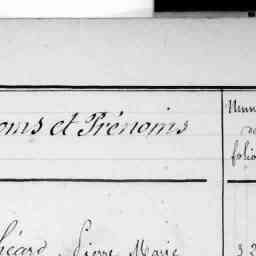 oms et Prénoms
Num
de
folio
héard Pierre Marie
32